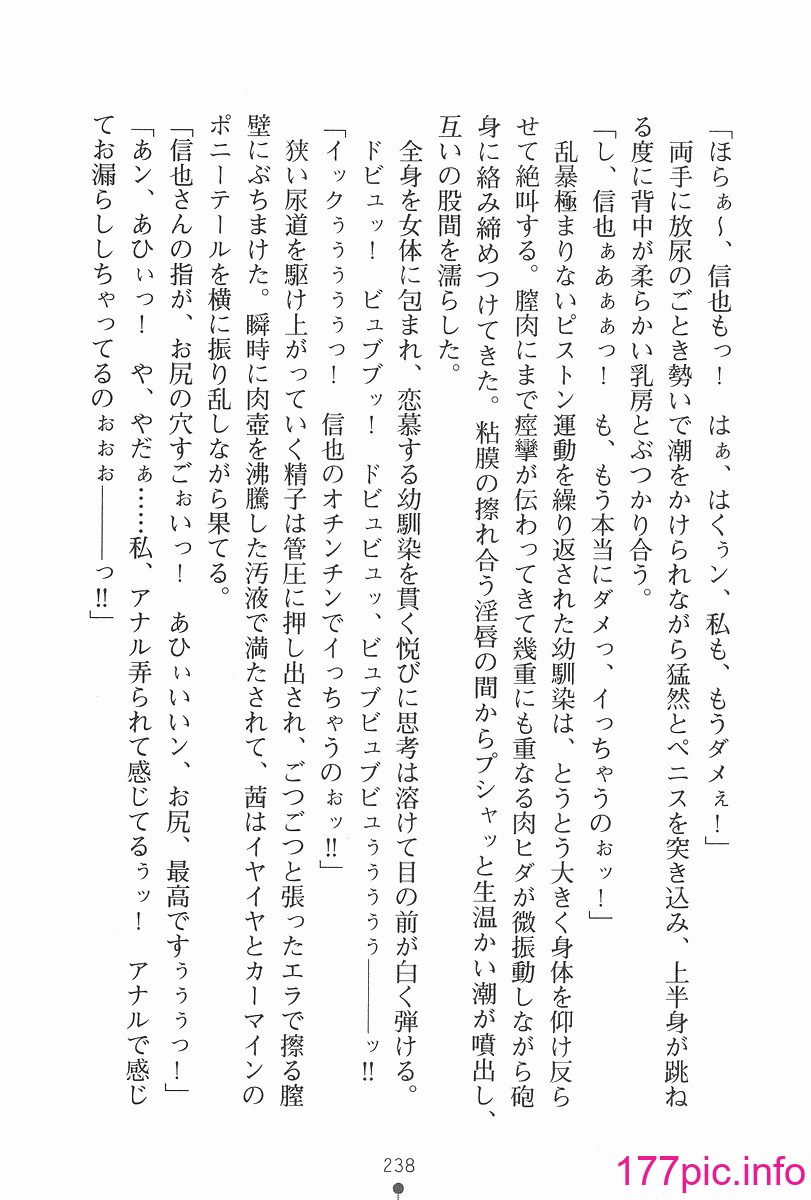 「ほらぁ～、信也もっ！　はぁ、はくぅン、私も、もうダメぇ！」
　両手に放尿のごとき勢いで潮をかけられながら猛然とペニスを突き込み、上半身が跳ね
る度に背中が柔らかい乳房とぶつかり合う。
「し、信也ぁあぁぁっ！　も、もう本当にダメっ、イっちゃうのぉッ！」
　乱暴極まりないピストン運動を繰り返された幼馴染は、とうとう大きく身体を仰け反ら
せて絶叫する。膣肉にまで痙攣が伝わってきて幾重にも重なる肉ヒダが微振動しながら砲
身に絡み締めつけてきた。粘膜の擦れ合う淫唇の間からプシャッと生温かい潮が噴出し、
互いの股間を濡らした。
　全身を女体に包まれ、恋慕する幼馴染を貫く悦びに思考は溶けて目の前が白く弾ける。
　ドビュッ！　ビュブブッ！　ドビュビュッ、ビュブビュブビュぅぅぅぅ――ッ!!
「イックぅぅぅぅぅっ！　信也のオチンチンでイっちゃうのぉッ!!」
　狭い尿道を駆け上がっていく精子は管圧に押し出され、ごつごつと張ったエラで擦る膣
壁にぶちまけた。瞬時に肉壺を沸騰した汚液で満たされて、茜はイヤイヤとカーマインの
ポニーテールを横に振り乱しながら果てる。
「信也さんの指が、お尻の穴すごぉいっ！　あひぃいいン、お尻、最高ですぅぅぅっ！」
「あン、あひぃっ！　や、やだぁ……私、アナル弄られて感じてるぅッ！　アナルで感じ
てお漏らししちゃってるのぉぉぉ――っ!!」
238
177pic.info